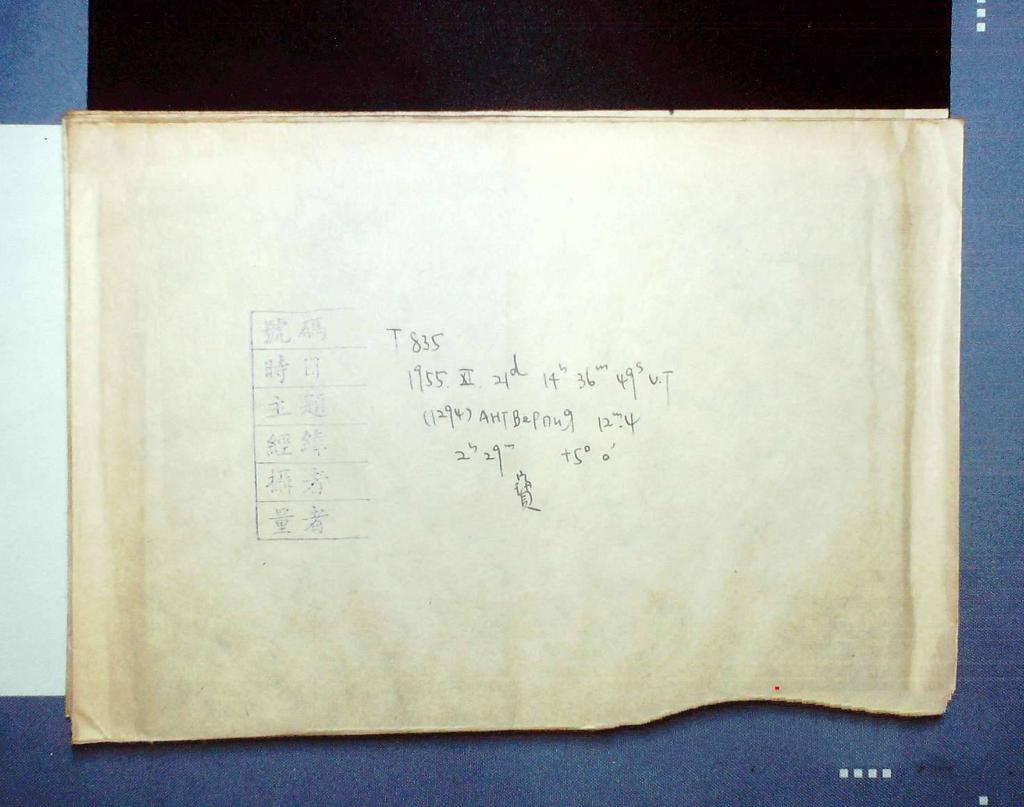 號碼 T 835
時日 1955 XI 21ᵈ 14ʰ 36ᵐ 49ˢ U.T
主題 (1294) Антверпия 12ᵐ.4
經緯 2ʰ 29ᵐ +5° 0′
攝者
量者